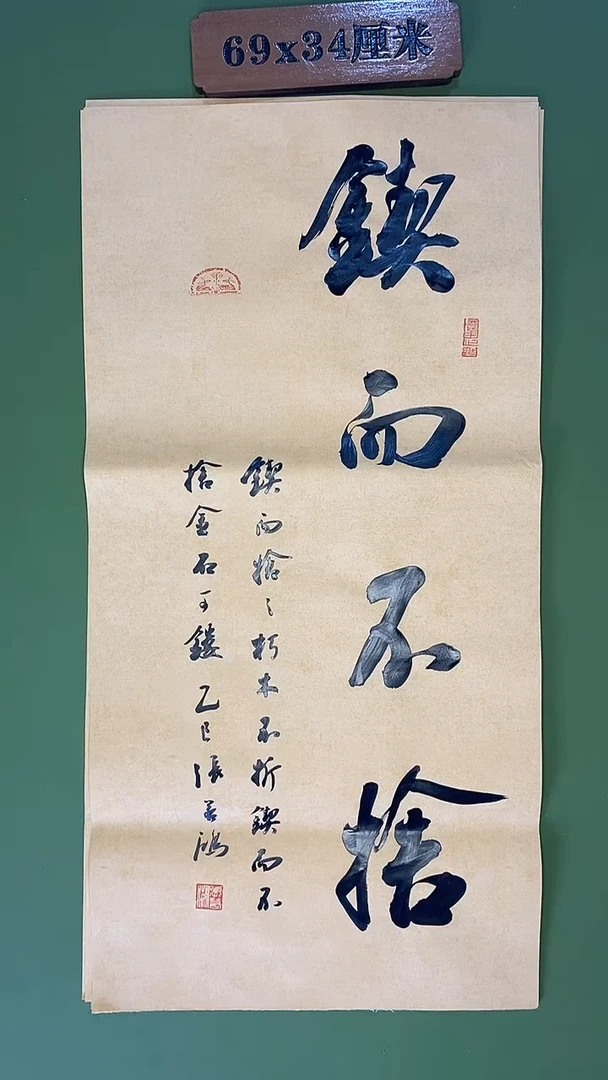 69x34厘米
鍥而不捨
鍥而捨之朽木不折鍥而不
捨金石可鏤乙巳張善鴻